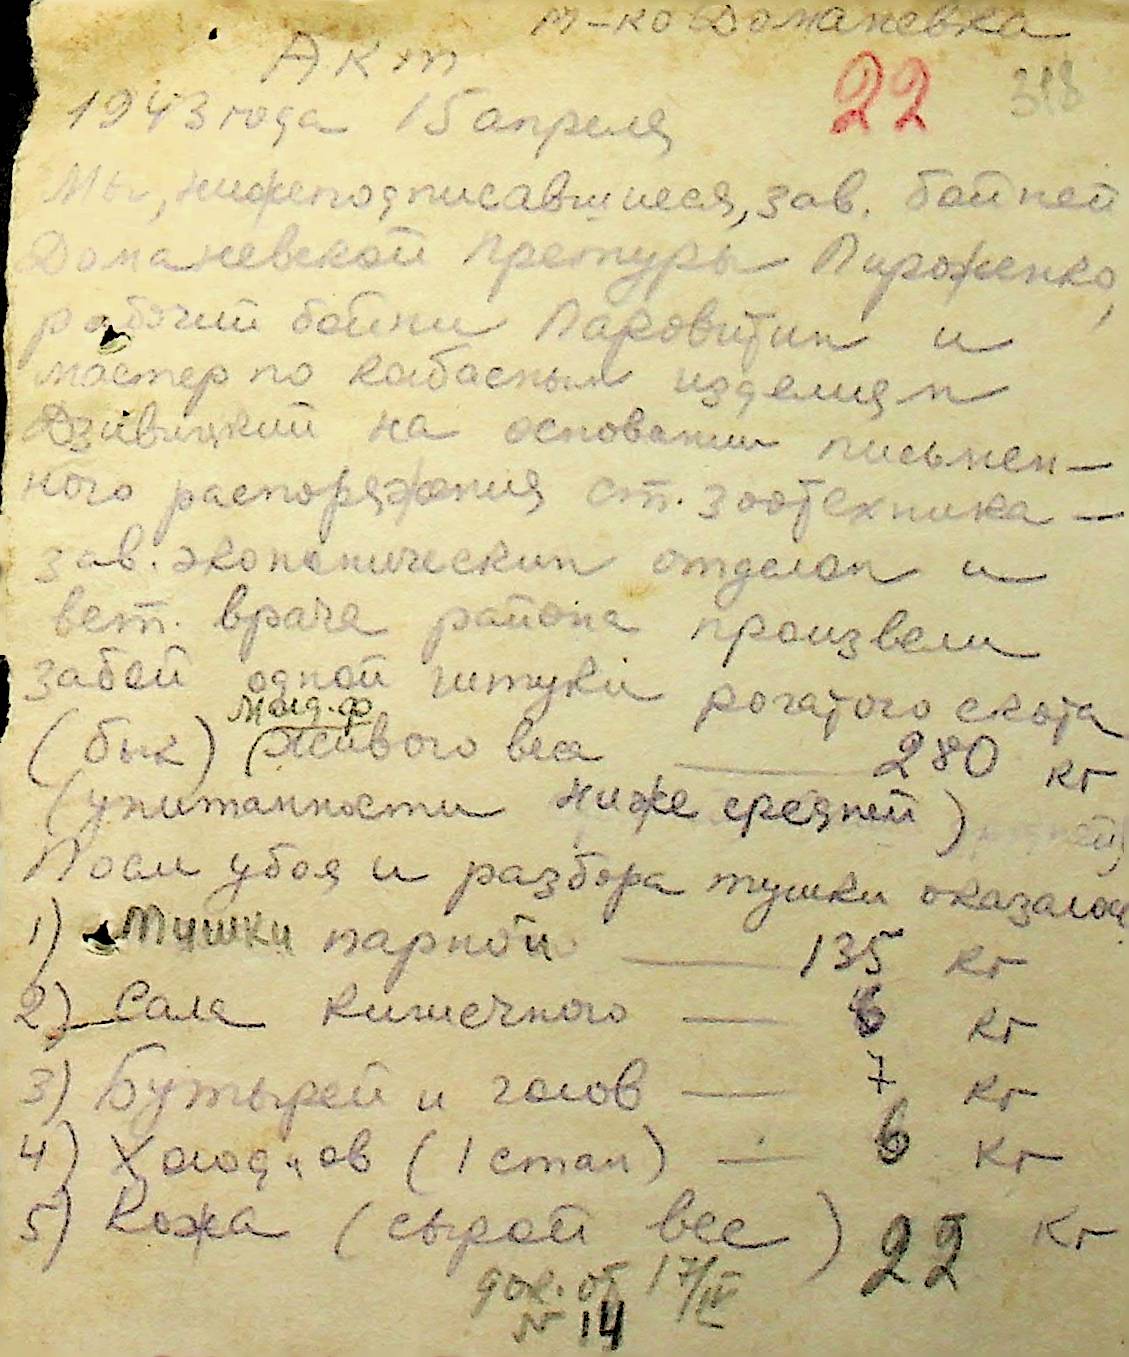 м-ко Доманевка
Акт
22 318
1943 года 15 апреля
Мы, нижеподписавшиеся, зав. бойней
Доманевской претуры Пироженко,
рабочий бойни Паровитин и
мастер по колбасным изделиям
Дзивицкий на основании письмен-
ного распоряжения ст. зоотехника -
зав. экономическим отделом и
вет. врача района произвели
забой одной штуки рогатого скота
(бык) живого веса — 280 кг
(упитанности ниже средней)
После убоя и разбора тушки оказалось
1) Тушки парной — 135 кг
2) Сала кишечного — 6 кг
3) Бутырей и голов — 7 кг
4) Холодцов (1 стан) — 6 кг
5) Кожа (сырой вес) 22 кг
док. от 17/IV
№ 14